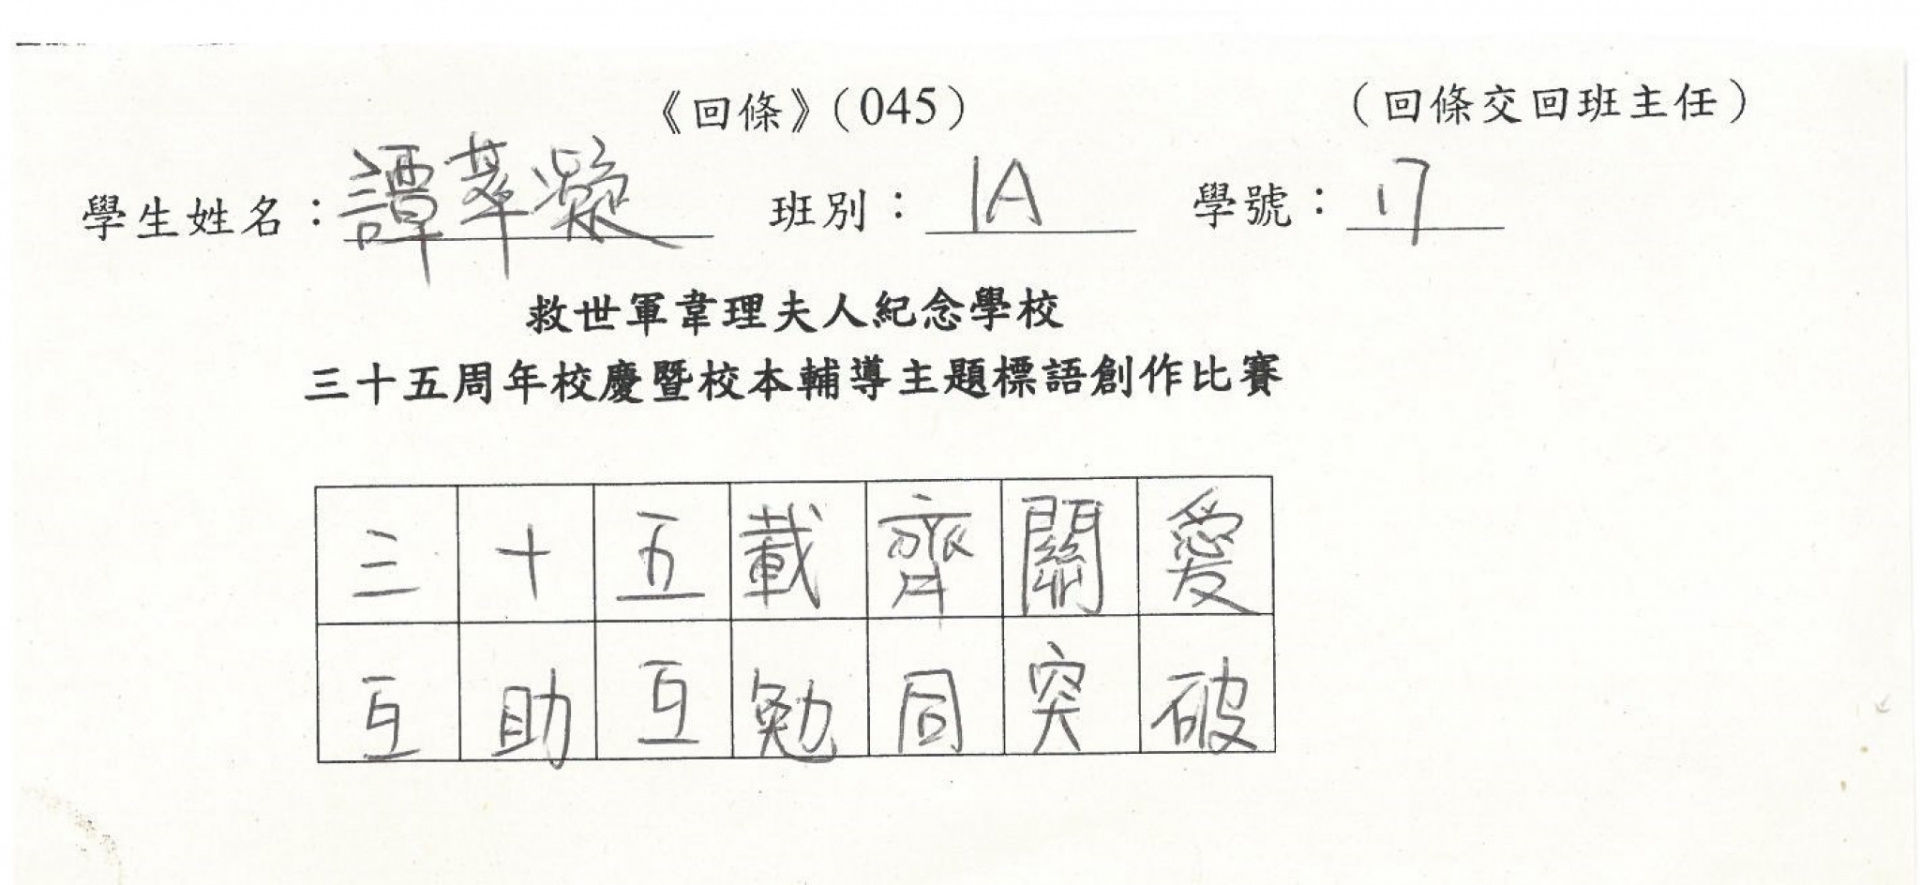 《回條》(045) (回條交回班主任)
學生姓名：譚萃凝 班別：1A 學號：17
救世軍韋理夫人紀念學校
三十五周年校慶暨校本輔導主題標語創作比賽
三十五載齊關愛
互助互勉同突破